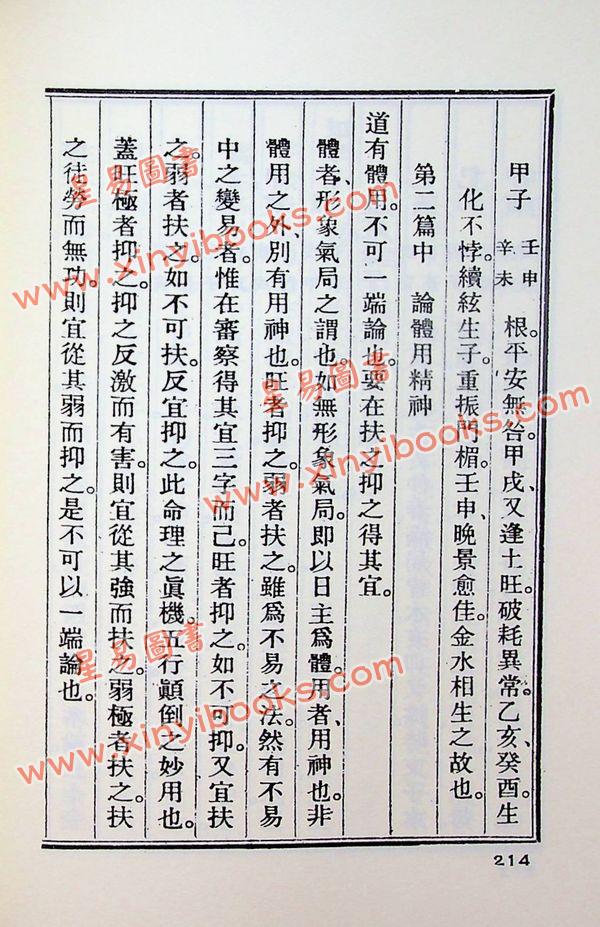 甲子 壬申 辛未 根。平安無咎。甲戌、又逢土旺。破耗異常。乙亥、癸酉。生
化不悖。續絃生子。重振門楣。壬申、晚景愈佳。金水相生之故也。
第二篇中 論體用精神
道有體用。不可一端論也。要在扶之抑之得其宜。
體者、形象氣局之謂也。如無形象氣局。即以日主爲體。用者、用神也。非
體用之外、別有用神也。旺者抑之。弱者扶之。雖爲不易之法。然有不易
中之變易者。惟在審察得其宜三字而己。旺者抑之。如不可抑。又宜扶
之。弱者扶之。如不可扶。反宜抑之。此命理之眞機。五行顚倒之妙用也。
蓋旺極者抑之。抑之反激而有害。則宜從其強而扶之。弱極者扶之。扶
之徒勞而無功。則宜從其弱而抑之。是不可以一端論也。
214
星易圖書
www.xinyibooks.com
星易圖書
www.xinyibooks.com
星易圖書
www.xinyibooks.com